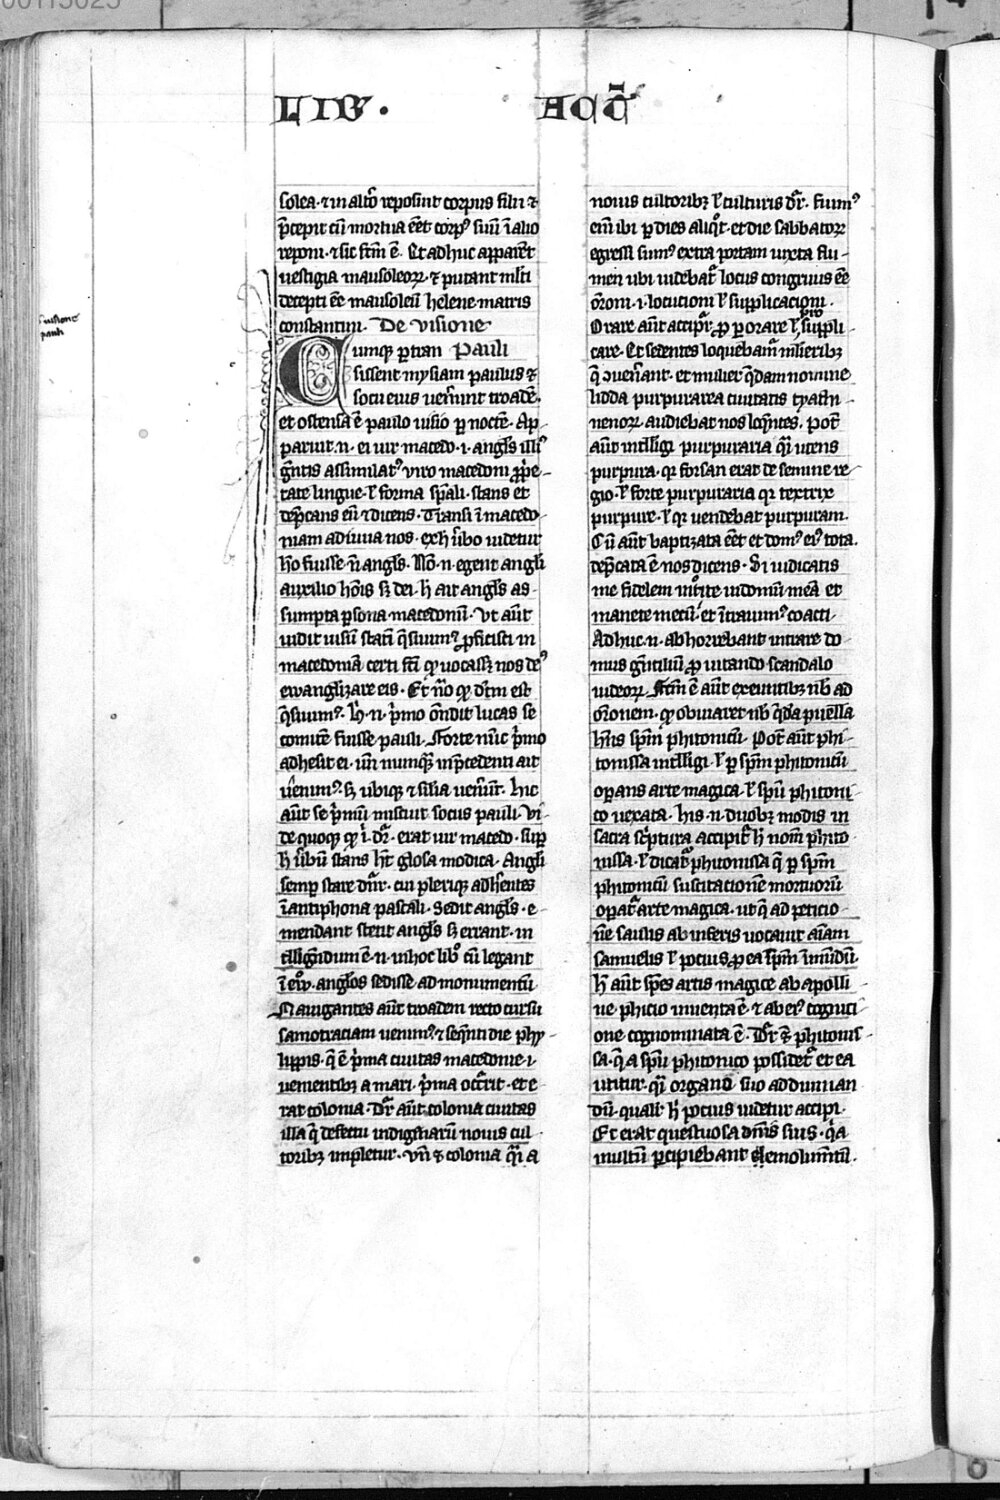 LIB. ACT̄
solea. ⁊ in alt'o reposuit corpus filii ⁊
p̄cepit cū mortua eēt corpꝰ suū ī alio
reponi. ⁊ sic fc̄m ē. Et adhuc apparēt
uestigia mausoleoꝝ. ⁊ putant ml̄ti
decepti eē mausoleū helene matris
constantini. De visione
Cumqꝫ ꝑtran Pauli
sissent mysiam paulus ⁊
socii eius uen̄unt troadē.
et ostensa ē paulo uisio ꝑ noctē. Ap-
paruit .n. ei uir macedo .i. angl̄s illiꝰ
gn̄tis assimilatꝰ viro macedoni ꝓp̄e-
tate lingue. l̓ forma sp̄ali. stans et
dep̄cans eū ⁊ dicens. Transi ī macedo-
niam adiuua nos. ex h̄ ūbo uidetur
h̄o fuisse. ñ angl̄s. Nō .n. egent angl̄i
auxilio hōis sꝫ dei. h̄ ait angl̄s as-
sumpta ꝑsona macedonū. Vt aūt
uidit uisū statī q̄siuimꝰ ꝓficisci in
macedoniā certi fc̄i qꝫ uocassꝫ nos deꝰ
ewanglizare eis. Et nō qꝫ dc̄m est
q̄siuimꝰ. h̓ .n. p̄mo ōndit lucas se
comitē fuisse pauli. Forte nūc p̄mo
adhesit ei. uñ nunqꝫ in p̄cedenti ait
uēnimꝰ. sꝫ ubiqꝫ ⁊ silia uen̄unt. hic
aūt se p̄mū miscuit socius pauli. Vi-
de quoqꝫ qꝫ ī. dr̄. erat uir macedo. suꝑ
h̄ ūbū stans hꝫ glosa modica. Angl̄i
semꝑ stare dn̄r. cui pleriqꝫ adh̓entes
ī antiphona pascali. Sedit angl̄s. e-
mendant stetit angl̄s sꝫ errant. in
tell̄igēdum ē .n. in hoc libō cū legant
ī ew̄. anglos sedisse ad monumentū
Nauigantes aūt troadem recto cursu
samotraciam uenimꝰ. ⁊ seq̄nti die phy-
lippis. q̄ ē p̄ma ciuitas macedonie .i.
uenientibꝫ a mari. p̄ma occ̄rit. et e-
rat colonia. Dr̄ aūt colonia ciuitas
illa q̄ defectu indigenarū nouis cul-
toribꝫ impletur. Vn̄ ⁊ colonia q̄i a
nouis cultoribꝫ l̓ culturis dr̄. fuimꝰ
em̄ ibi ꝑ dies aliq̄t. et die sabbatoꝝ
egressi sumꝰ extra portam iuxta flu-
men ubi uidebat̄ locus congruus eē
or̄oni .i. locutioni l̓ supplicacioni.
Orare aūt accipit̄. ꝓ ꝑorare l̓ suppli
pro
care. Et sedentes loquebam̄ ml̓ieribꝫ
q̄ ꝯuen̄ant. et mulier q̄dam nomine
lidda purpuraria ciuitatis tyati-
nenoꝝ. audiebat nos loq̄ntes. Pot̄
aūt intell̄igi purpuraria q̄i utens
purpura. qꝛ forsan erat de semine re-
gio. l̓ forte purpuraria qꝛ textrix
purpure. l̓ qꝛ uendebat purpuram.
Cū aūt baptizata eēt et domꝰ eiꝰ tota.
dep̄cata ē nos dicens. Si iudicatis
me fidelem int̓ite in domū meā et
manete mecū. et ītrauimꝰ coacti.
Adhuc .n. abhorrebant intrare do-
mus gn̄tiliū ꝓ uitando scandalo
iudeoꝝ. Fc̄m ē aūt exeuntibꝫ nb̄ ad
or̄onem. qꝫ obuiaret nb̄ q̄dā puella
hn̄s sp̄m phitonicū. Pot̄ aūt phi-
tonissa intell̄igi. l̓ ꝑ sp̄m phitonicū
oꝑans arte magica. l̓ sp̄u phitoni-
co uexata. his .n. duobꝫ modis in
sacra sc̄ptura accipit̄ h̄ nom̄ phito
nissa. l̓ dicat̄ phitonissa q̄ ꝑ sp̄m
phitonicū suscitacionē mortuorū
oꝑat̄ arte magica. ut q̄ ad peticio-
nē saulis ab inferis uocauit aīam
samuelis l̓ pocius ꝓ ea sp̄m īmūdū.
h̄ aūt sp̄es artis magice ab apolli-
ne phicio inuenta ē. ⁊ ab eiꝰ cognici-
one cognominata ē. Dr̄ ⁊ phitonis-
sa. q̄ a sp̄u phitonico possidet̄ et ea
utitur. q̄i organo suo ad diuinan
dū. qualit̄ h̄ pocius uidetur accipi.
Et erat questuosa dn̄is suis. q̄a
multū ꝑcipiebant emolumtū.